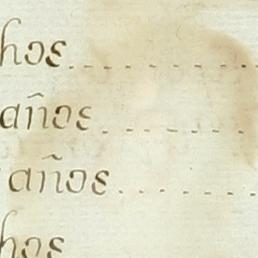 hos
años
años
hos